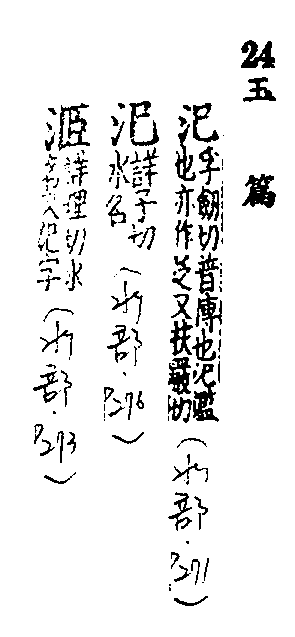 24 玉篇
氾 孚劒切普博也氾濫
也亦作泛又扶嚴切 (水部.P.271)
汜 詳子切
水名 (水部.P.276)
洍 詳理切水
汜字 (水部.P.273)